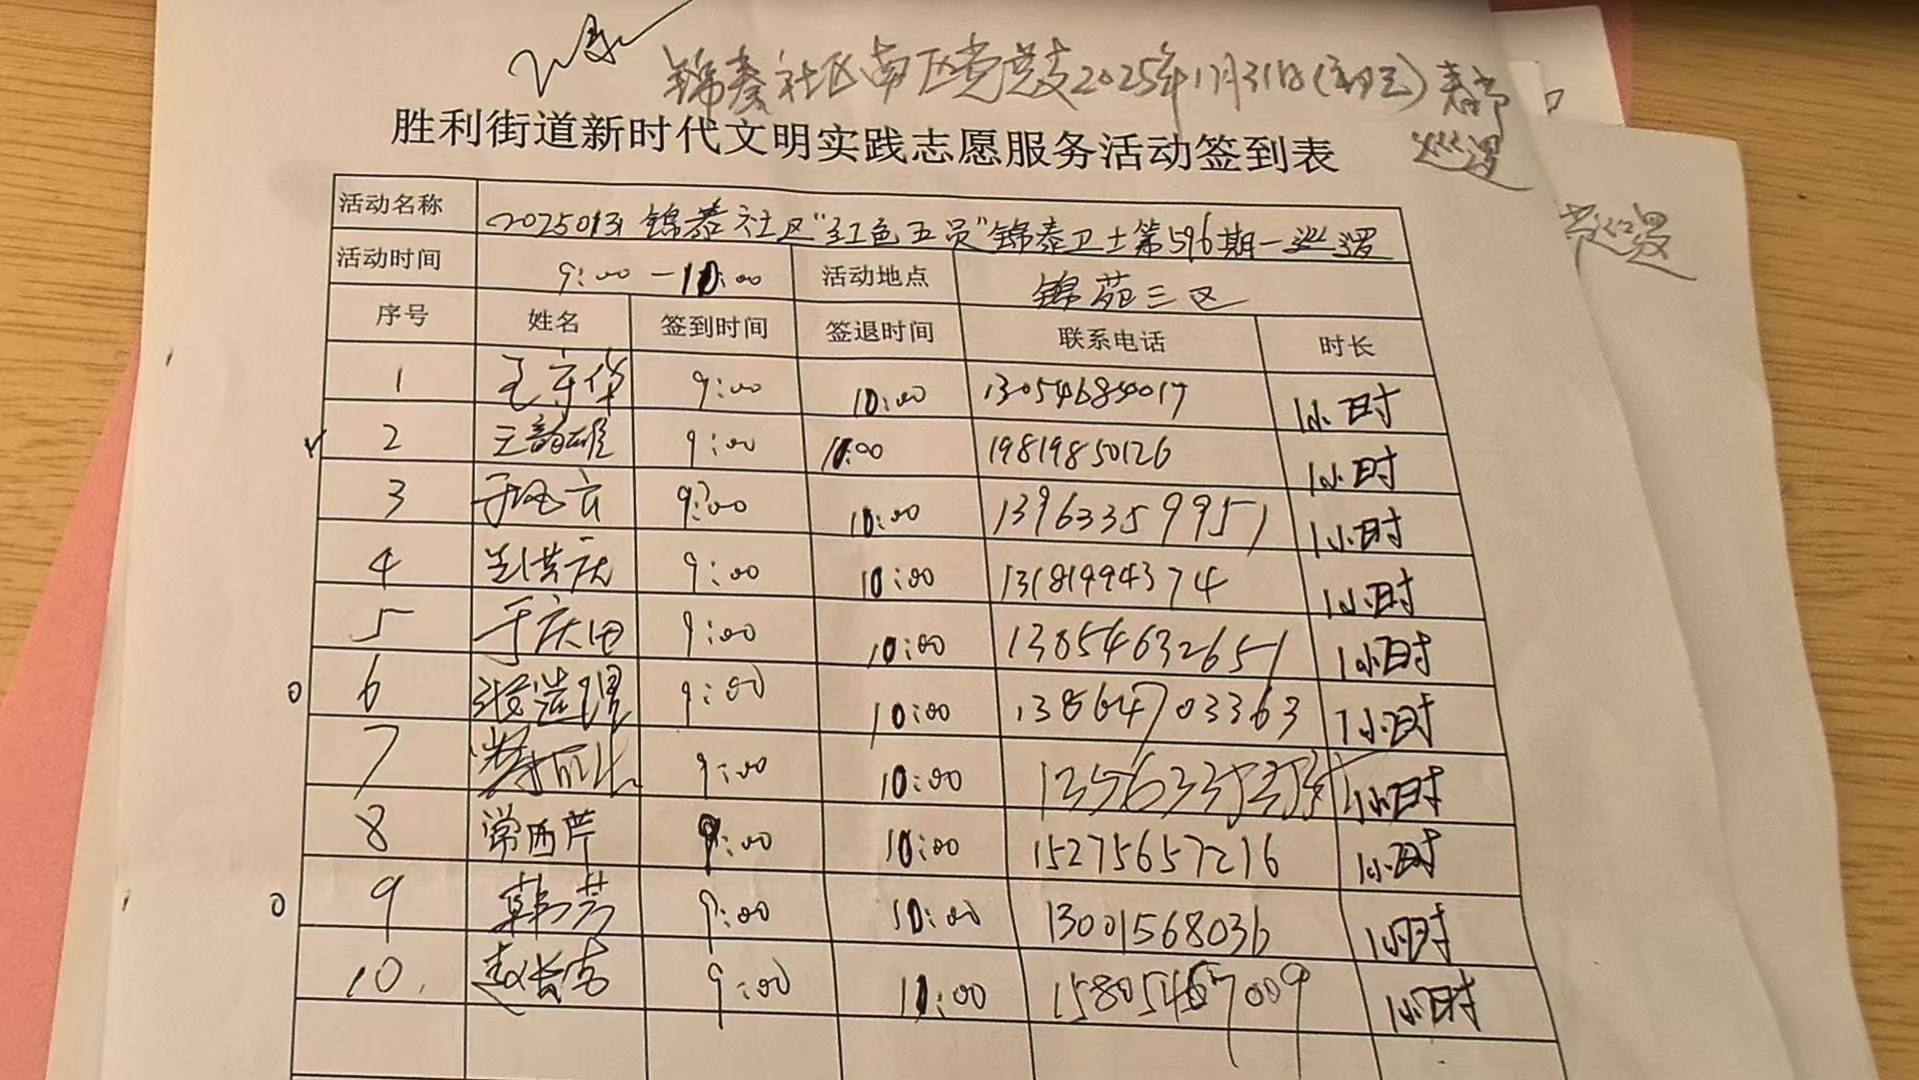 锦泰社区南区党总支2025年1月31日(初三)春节
巡逻
胜利街道新时代文明实践志愿服务活动签到表
活动名称 20250131锦泰社区“红色五员”锦泰卫士第596期-巡逻
活动时间 9:00-10:00 活动地点 锦苑三区
序号 姓名 签到时间 签退时间 联系电话 时长
1 王守华 9:00 10:00 13054684017 1小时
2 王韵雄 9:00 10:00 19819850126 1小时
3 于风云 9:00 10:00 13963359951 1小时
4 兰洪庆 9:00 10:00 13181994374 1小时
5 于庆田 9:00 10:00 13854632651 1小时
6 张造谓 9:00 10:00 13864703363 1小时
7 9:00 10:00 1小时
8 常西芹 9:00 10:00 15275657216 1小时
9 韩芳 9:00 10:00 13001568036 1小时
10. 赵长吉 9:00 10:00 15805467009 1小时
巡逻